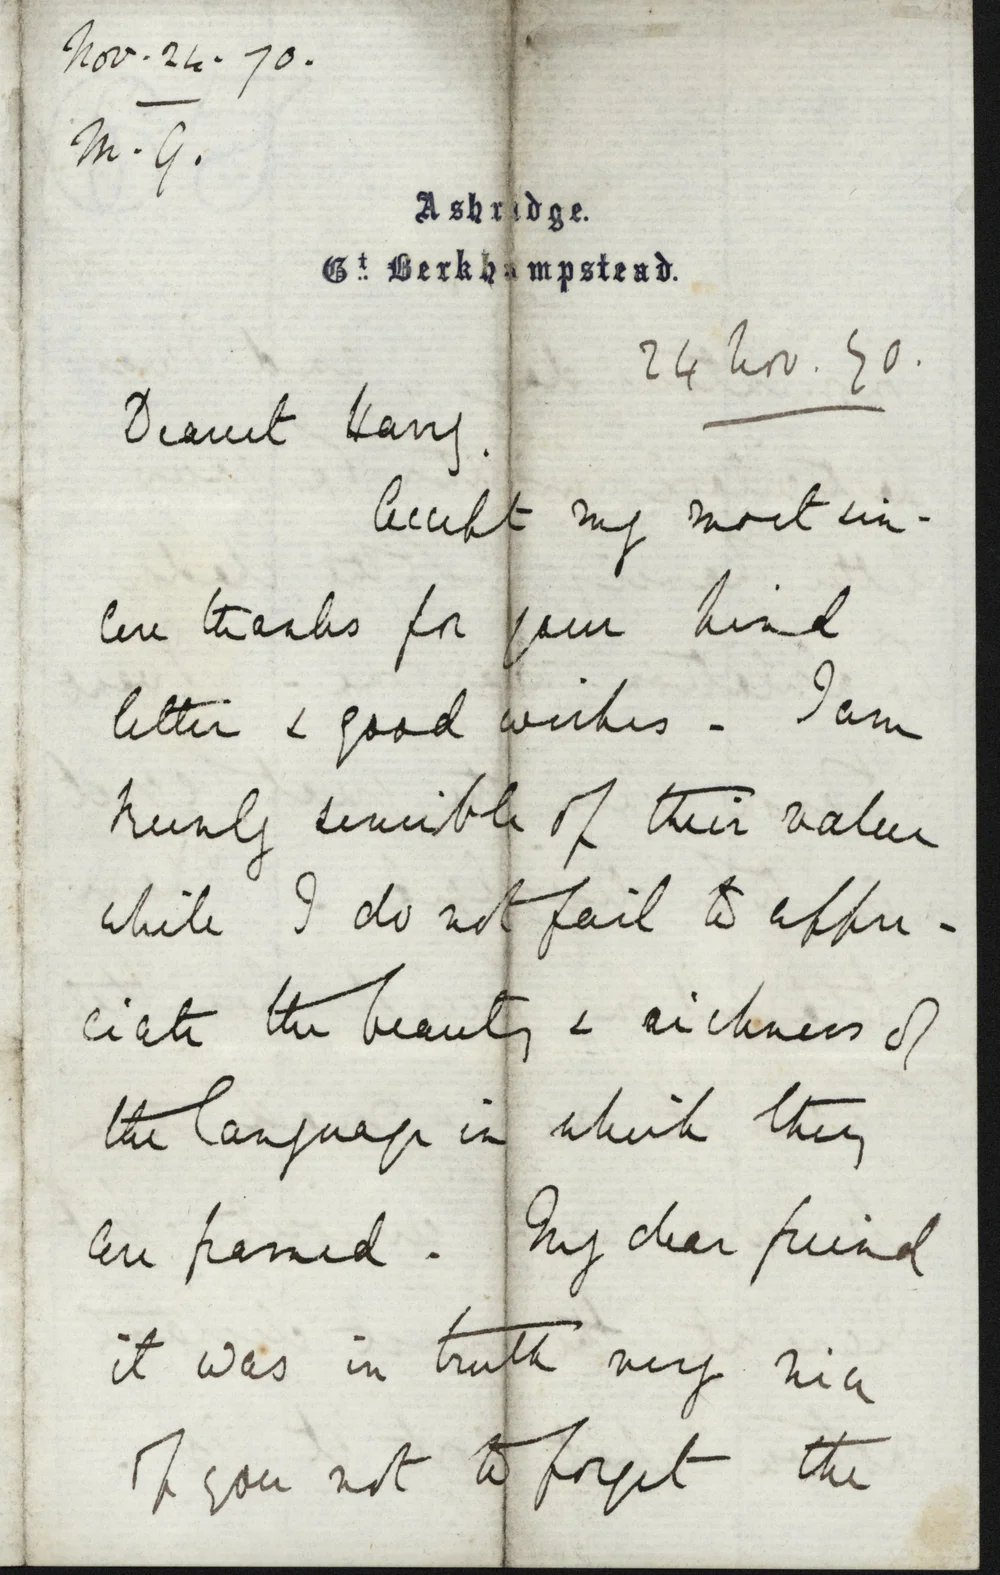 Nov. 24. 70.
M. G.
Ashridge.
Gt. Berkhampstead.
24 Nov. 70.
Dearest Harry.
Accept my most sin-
cere thanks for your kind
letter & good wishes - I am
keenly sensible of their value
while I do not fail to appre-
ciate the beauty & richness of
the language in which they
are framed - My dear friend
it was in truth very nice
of you not to forget the